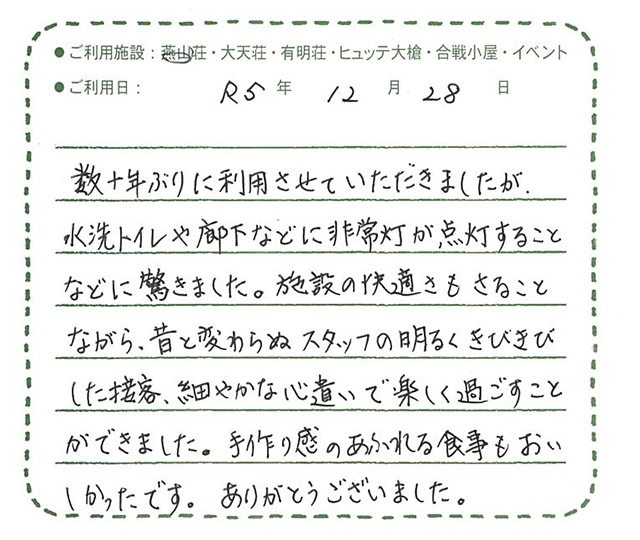 ● ご利用施設：燕山荘・大天荘・有明荘・ヒュッテ大槍・合戦小屋・イベント
● ご利用日： R5 年 12 月 28 日
数十年ぶりに利用させていただきましたが、
水洗トイレや廊下などに非常灯が点灯すること
などに驚きました。施設の快適さもさること
ながら、昔と変わらぬスタッフの明るくきびきび
した接客、細やかな心遣いで楽しく過ごすこと
ができました。手作り感のあふれる食事もおい
しかったです。ありがとうございました。